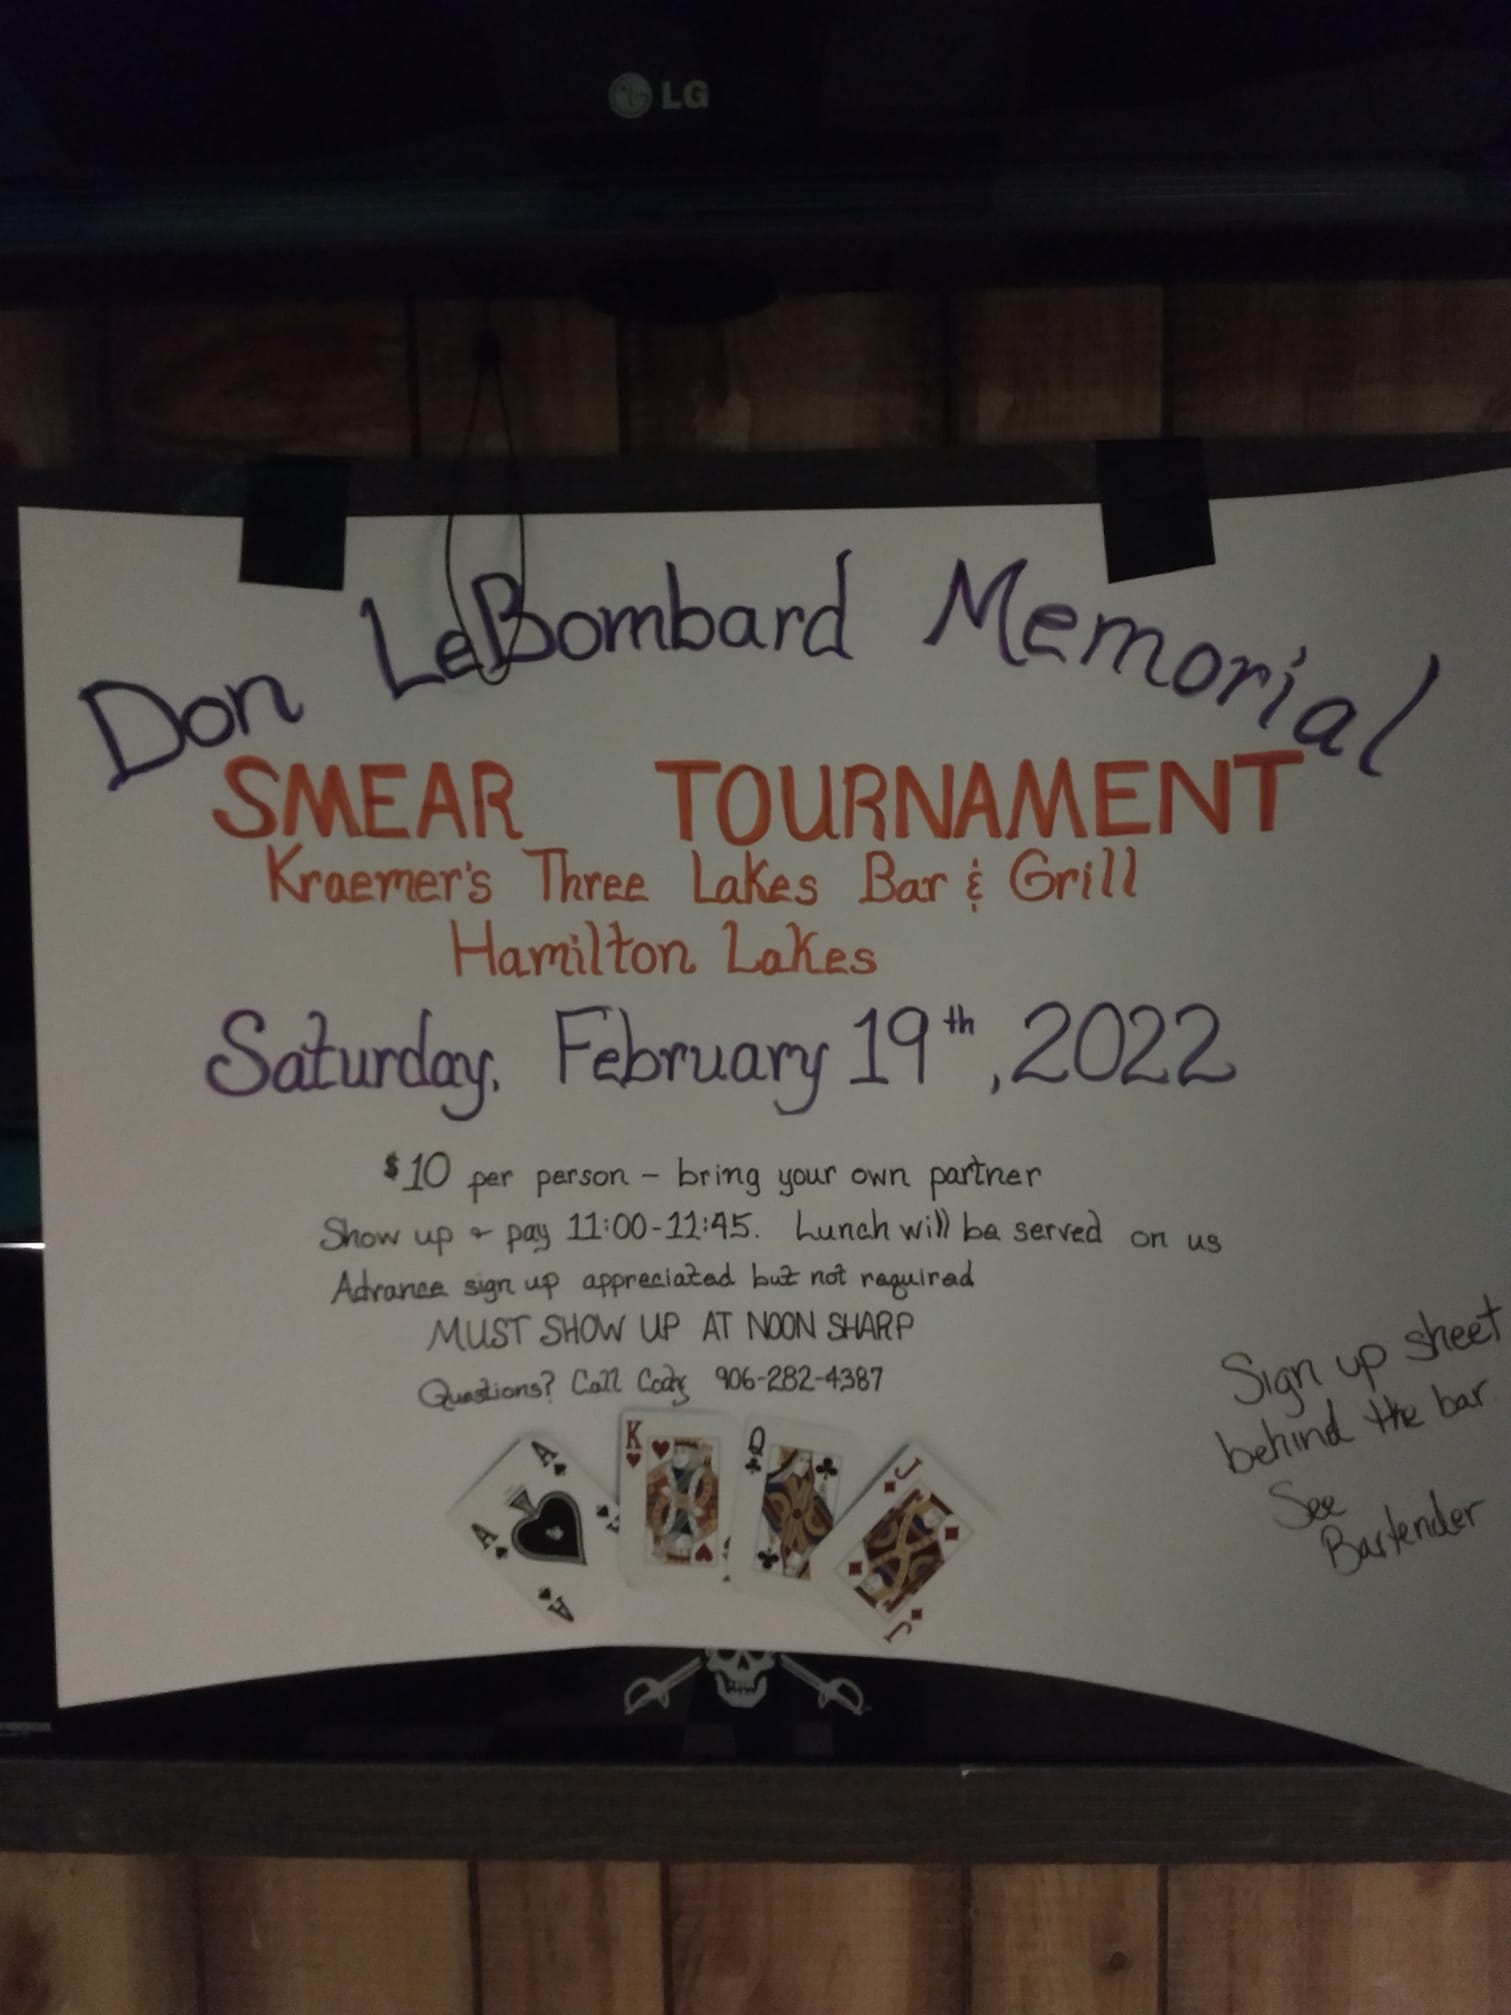 LG
Don LeBombard Memorial
SMEAR TOURNAMENT
Kraemer's Three Lakes Bar & Grill
Hamilton Lakes
Saturday, February 19th, 2022
$10 per person - bring your own partner
Show up & pay 11:00-11:45. Lunch will be served on us
Advance sign up appreciated but not required
MUST SHOW UP AT NOON SHARP
Questions? Call Cody 906-282-4387
Sign up sheet
behind the bar
See
Bartender
A K Q J
A A
A J